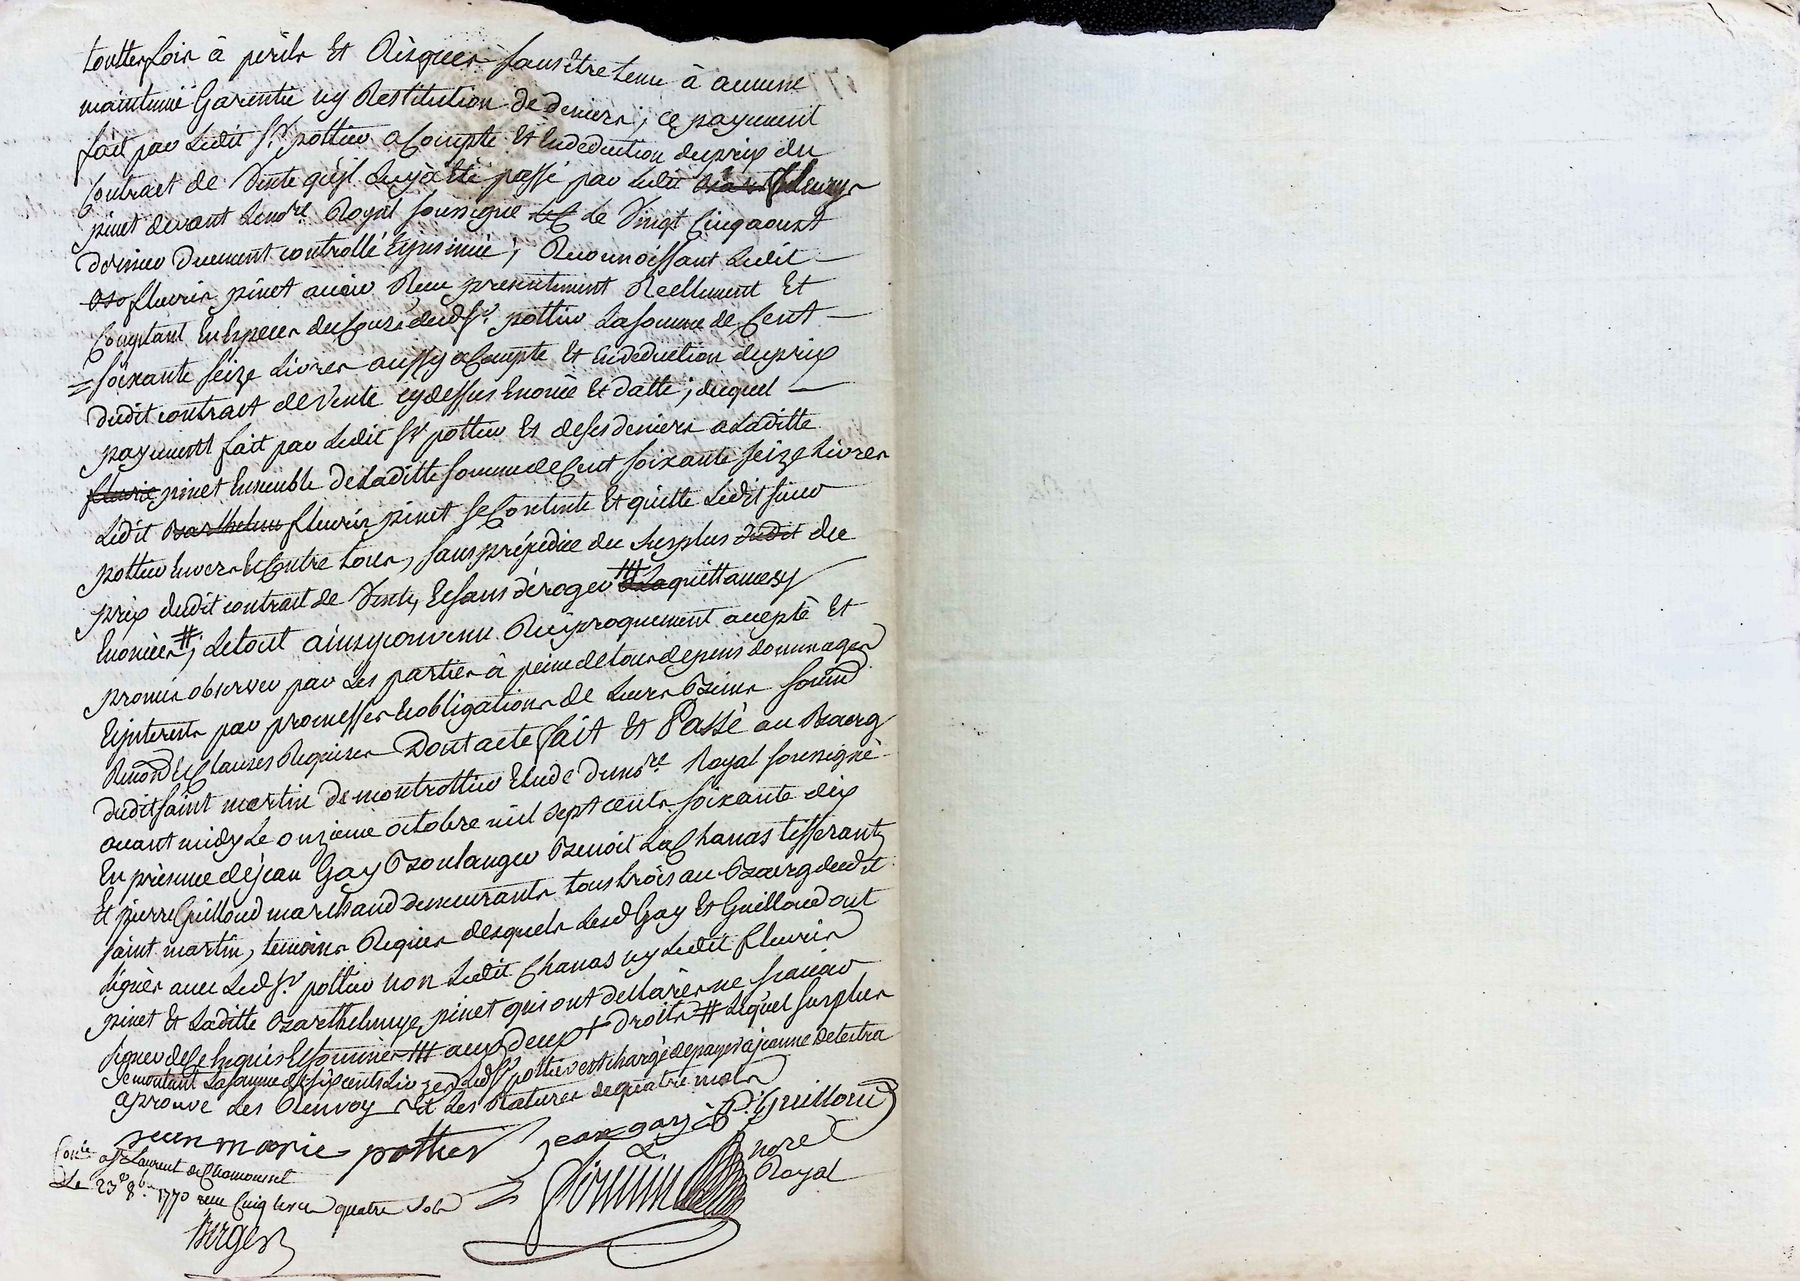 touttesfois à périls Et Risques sans être tenu à aucune
maintenüe Garentie ny Restitution de deniers, ce payement
fait par Ledit Sr. pottier a Compte Et Endeduction duprix du
Contract de Vente qu'il Luy a été passé par Ledit fleurys
pinet devant Le nore. Royal soussigné Le Vingt Cinq aoust
dernier Duement controllé Et insinué; Reconnoissant Ledit
fleuris pinet avoir Reçu presentement Reellement Et
Comptant En Especes du Cours dudSr. pottier La somme de Cent
soixante seize Livres aussy a Compte Et Endeduction duprix
dudit contract de Vente cydessus Enoncé Et datté; duquel
payement fait par Ledit Sr pottier Et deses deniers a Laditte
fleurie pinet Ensemble de Laditte somme de Cent soixante seize Livres
Ledit Barthelemy fleuris pinet se Contente Et quitte Ledit sieur
pottier Envers Et Contre tous, sans préjudice du surplus dudit du
prix dudit contract de Vente, Et sans déroger quittances
Enoncées #; Letout ainsy convenu Reciproquement accepté Et
promis observer par Les parties à peine de tous depens dommages
Et interests par promesses Et obligations de Leurs Biens soumd
Renond Et Clauses Requises Dont acte fait Et Passé au Bourg
dudit saint martin de montrottier Etude dunore. Royal soussigné
avant midy Le onzieme octobre mil sept cents soixante dix
En présence de jean Gay Boulanger Benoit La Chanas tisserant
Et pierre Guilloud marchand demeurants tous trois au Bourg dudit
saint martin, temoins Requis desquels Lesd Gay Et Guilloud ont
signés avec Led Sr. pottier non Ledit Chanas ny Ledit fleuris
pinet Et Laditte Barthelemye pinet qui ont declarés ne scavoir
signer de Ce Enquis Et sommés aux deux + droits # Lequel surplus
Semontant Lasomme de six cents Livres Led Sr pottier est chargé depayer à jeanne
aprouvé Les Renvoy Et Les Ratures de quatre mots
jean marie pottier jean gay P. Guilloud
Conlé a St Laurent de Chamousset
Le 23e 8b. 1770 reçu Cinq Livres quatre sols
nore
Royal
Berger